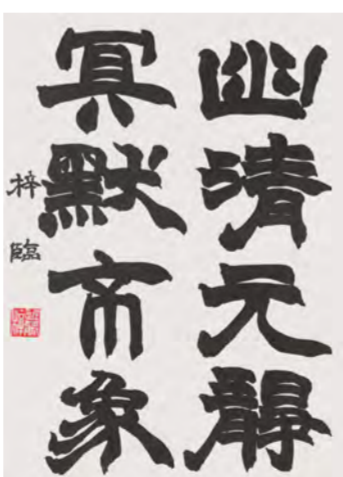 幽清元靜
冥默象
梓臨